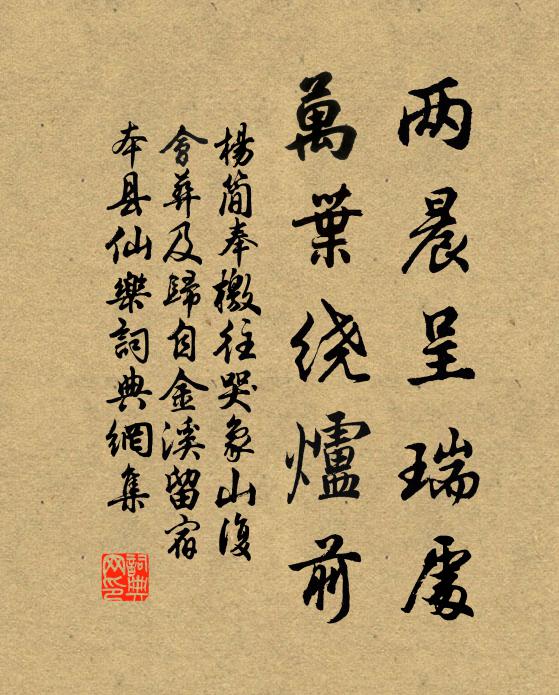 两晨呈瑞處
萬葉绕爐前
楊簡奉檄往哭象山復
會葬及歸自金溪留宿
本县仙樂詞典網集
詞典
网印